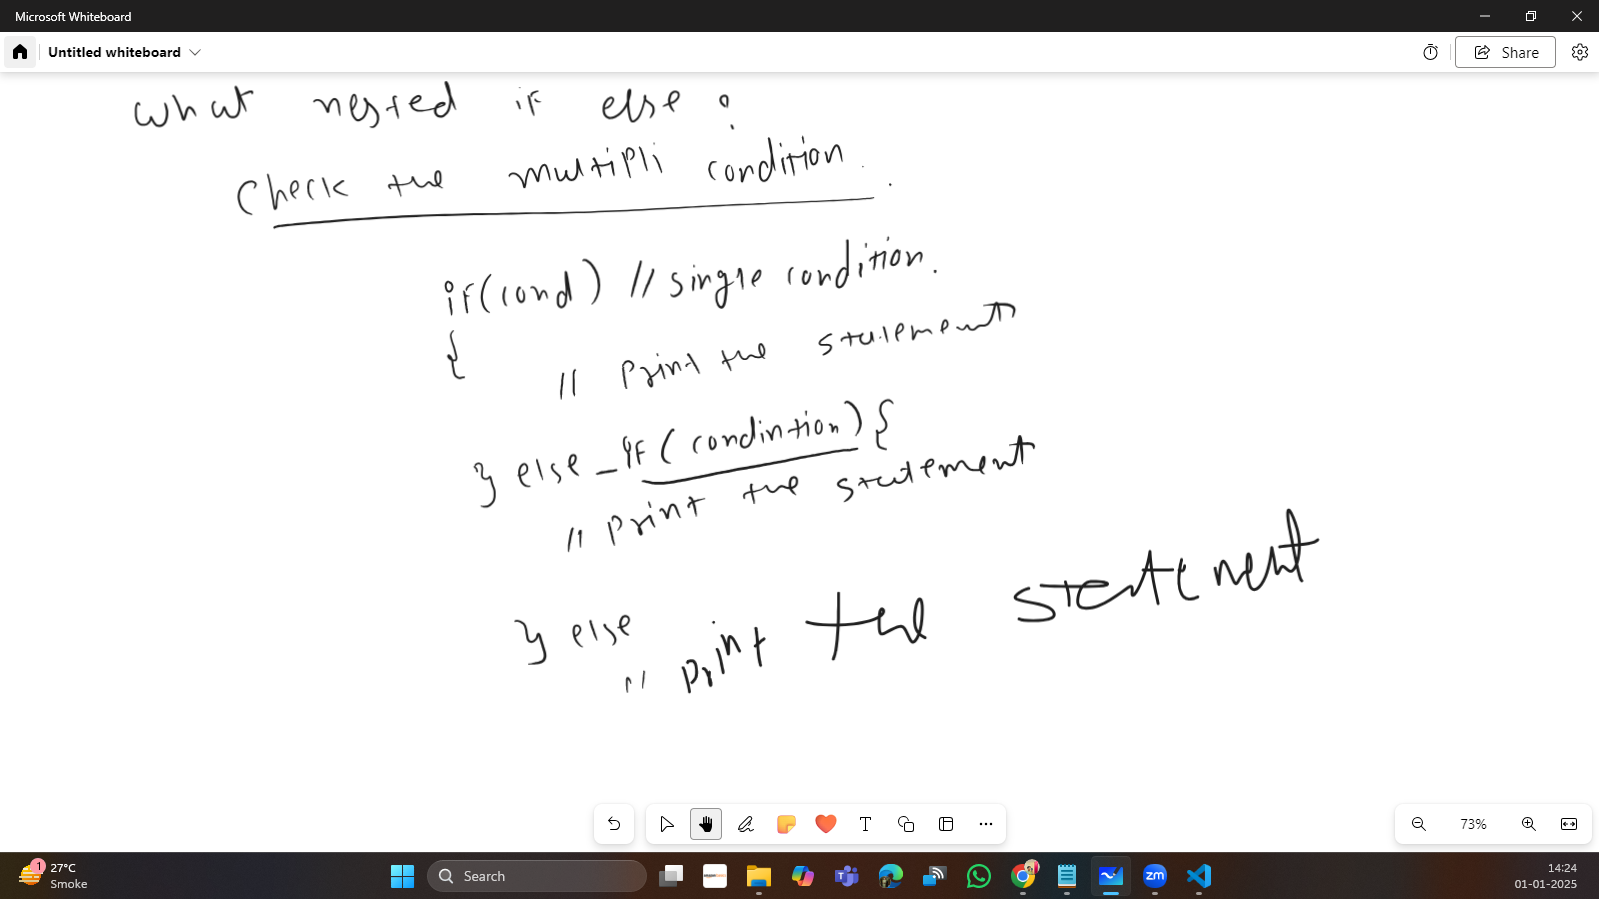 Microsoft Whiteboard
Untitled whiteboard
Share
what nested if else ?
Check the multipli condition.
if(cond) // single condition.
{
// Print the statement
} else if (condintion) {
// Print the statement
} else
// Print the statement
73%
1
27°C
Smoke
Search
zm
14:24
01-01-2025